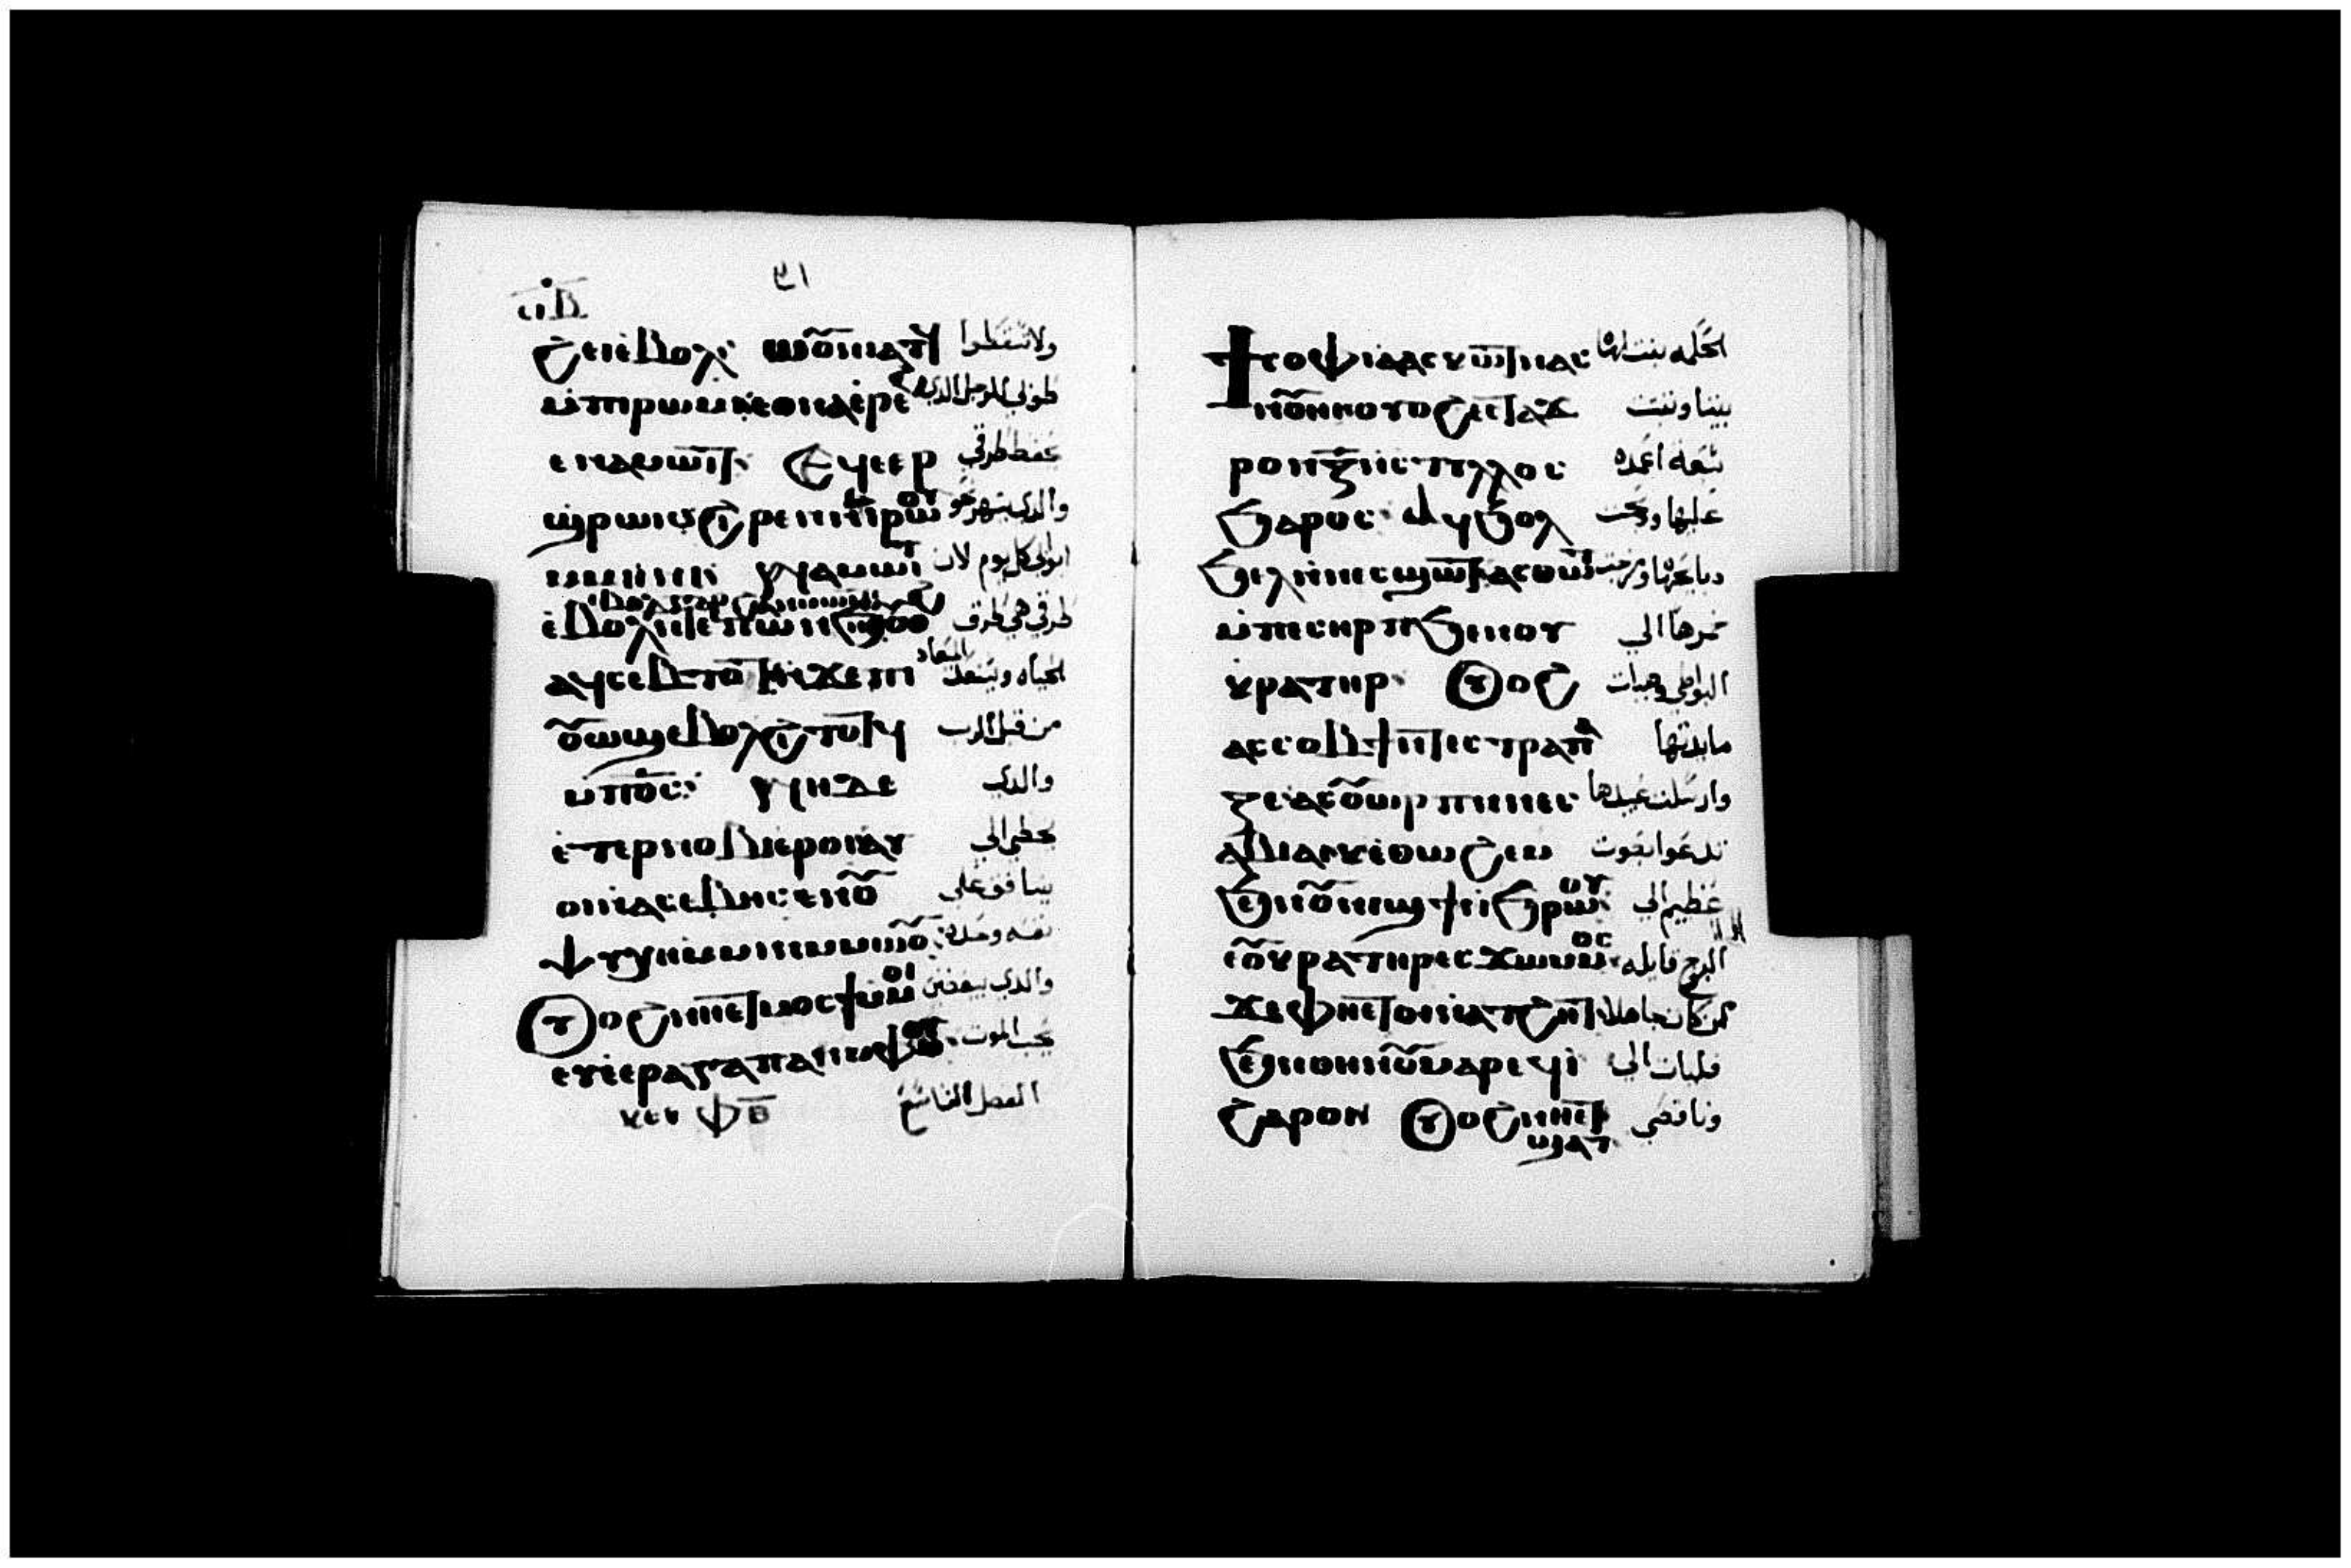 ϩⲉⲓⲉⲃⲟⲗ ⲱⲟⲩⲛⲓⲁⲧϥ ولا تسقطوا
ⲙⲡⲓⲣⲱⲙⲓ ⲉⲑⲛⲁⲁⲣⲉϩ طوبى للرجل الدي
ⲉⲛⲁⲙⲱⲓⲧ ⲉϥⲉⲉⲣ يحفظ طرقي
ϣⲣⲱⲓⲥ ϩⲓⲣⲉⲛ ⲛⲓⲣⲱⲟⲩ والدي يسهر نحو
ⲙⲙⲏⲛⲓ ⲛⲁⲙⲱⲓⲧ ابوابي كل يوم لان
ⲉⲃⲟⲗ ⲛⲧⲉ ⲡⲱⲛϧ ⲟⲩⲟϩ طرقي هي طرق
ⲁϥⲥⲉⲃⲧⲟⲧ ⲛϫⲉ ⲡⲓ الحياه
ⲟⲩⲱϣ ⲉⲃⲟⲗϩⲓⲧⲟⲧϥ من قبل الرب
ⲙⲡϭⲥ ⲛⲏ ⲇⲉ والدي
ⲉⲧⲉⲣⲛⲟⲃⲓ ⲉⲣⲟⲓ ⲁⲩ يخطي الي
ⲟⲛⲓⲁⲥⲉⲃⲏⲥ ⲉⲧⲟⲩ ينافق علي
ⲯⲩⲭⲏ ⲙⲙⲓⲛ ⲙⲙⲱⲟⲩ نفسه وحده
ⲟⲩⲟϩ ⲛⲏⲉⲧⲙⲟⲥϯ ⲙⲙⲟⲓ والدي يبغضني
ⲉⲩⲉⲉⲣⲁⲅⲁⲡⲁⲛ ⲙⲫⲙⲟⲩ يحب الموت
ⲕⲉⲛ ⲯ ⲑ الفصل التاسع
ϯⲥⲟⲫⲓⲁ ⲁⲥⲕⲱⲧ ⲛⲁⲥ الحكمه بنت لها
ⲛⲟⲩⲏⲓ ⲟⲩⲟϩ ⲉⲥⲧⲁϫ بيتا وثبتت
ⲣⲟ ⲛⲍ ⲛⲥⲧⲩⲗⲟⲥ سبعه اعمده
ϧⲁⲣⲟⲥ ⲁϥϧⲟⲗ عليها ودبحت
ϧⲉⲗ ⲛⲛⲉⲥϣⲱⲧ ⲁⲥⲑⲱⲧ دبايحها ومزجت
ⲙⲡⲉⲥⲏⲣⲡ ϧⲉⲛ ⲟⲩ خمرها الي
ⲕⲣⲁⲧⲏⲣ ⲟⲩⲟϩ البواطي وهيات
ⲁⲥⲥⲟⲃϯ ⲛⲧⲉⲥⲧⲣⲁⲡⲉ مايدتها
ⲍⲁ ⲁⲥⲟⲩⲱⲣⲡ ⲛⲛⲉⲥ وارسلت عبيدها
ⲉⲃⲓⲁⲓⲕ ⲉⲑⲱϩⲉⲙ تدعوا بصوت
ϧⲉⲛ ⲟⲩⲛⲓϣϯ ⲛϧⲣⲱⲟⲩ عظيم الي
ⲉⲟⲩⲕⲣⲁⲧⲏⲣ ⲉⲥϫⲱ ⲙⲙⲟⲥ البرج قايله
ϫⲉ ⲫⲏⲉⲧⲟⲓ ⲛⲁⲧϩⲏⲧ من كان جاهلا
ϧⲉⲛ ⲑⲏⲛⲟⲩ ⲙⲁⲣⲉϥⲓ فليات الي
ϩⲁⲣⲟⲛ ⲟⲩⲟϩ ⲛⲏⲉⲧ وناقصي
ϣⲁⲧ